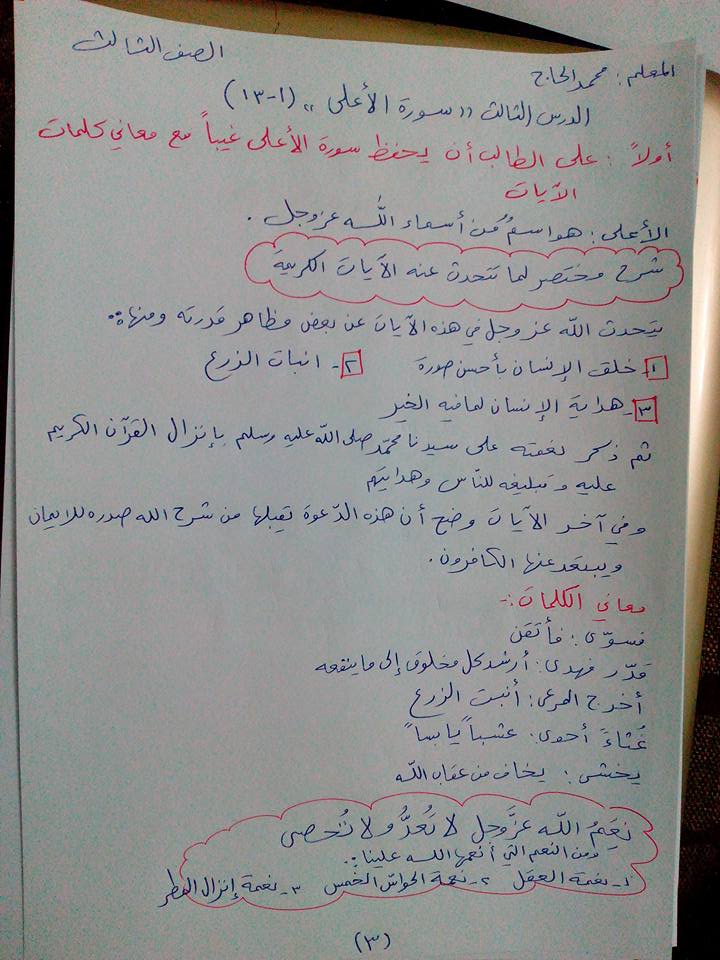 المعلم: محمد الحاج
الصف الثالث
الدرس الثالث "سورة الأعلى" (١-١٣)
أولاً: على الطالب أن يحفظ سورة الأعلى غيباً مع معاني كلمات
الآيات
الأعلى: هو اسمٌ من أسماء اللّه عزوجل.
شرح مختصر لما تتحدث عنه الآيات الكريمة
يتحدث الله عزوجل في هذه الآيات عن بعض مظاهر قدرته ومنها:
١- خلق الإنسان بأحسن صورة ٢- انبات الزرع
٣- هداية الإنسان لما فيه الخير
ثم ذكر نعمته على سيدنا محمّد صلى اللّه عليه وسلم بإنزال القرآن الكريم
عليه وتبليغه للنّاس وهدايتهم
وفي آخر الآيات وضح أن هذه الدّعوة يتقبلها من شرح الله صدره للايمان
ويبتعد عنها الكافرون.
معاني الكلمات:-
فسوّى: فأتقن
قدّر فهدى: أرشد كل مخلوق إلى ما ينفعه
أخرج المرعى: أنبت الزرع
غُثاءً أحوى: عشباً يابساً
يخشى: يخاف من عقاب اللّه
نِعَمُ اللّه عزَّوجل لا تُعدُّ ولا تُحصى
ومن النعم التي أنعمها اللّه علينا:
١- نعمة العقل ٢- نعمة الحواسّ الخمس ٣- نعمة إنزال المطر
(٣)